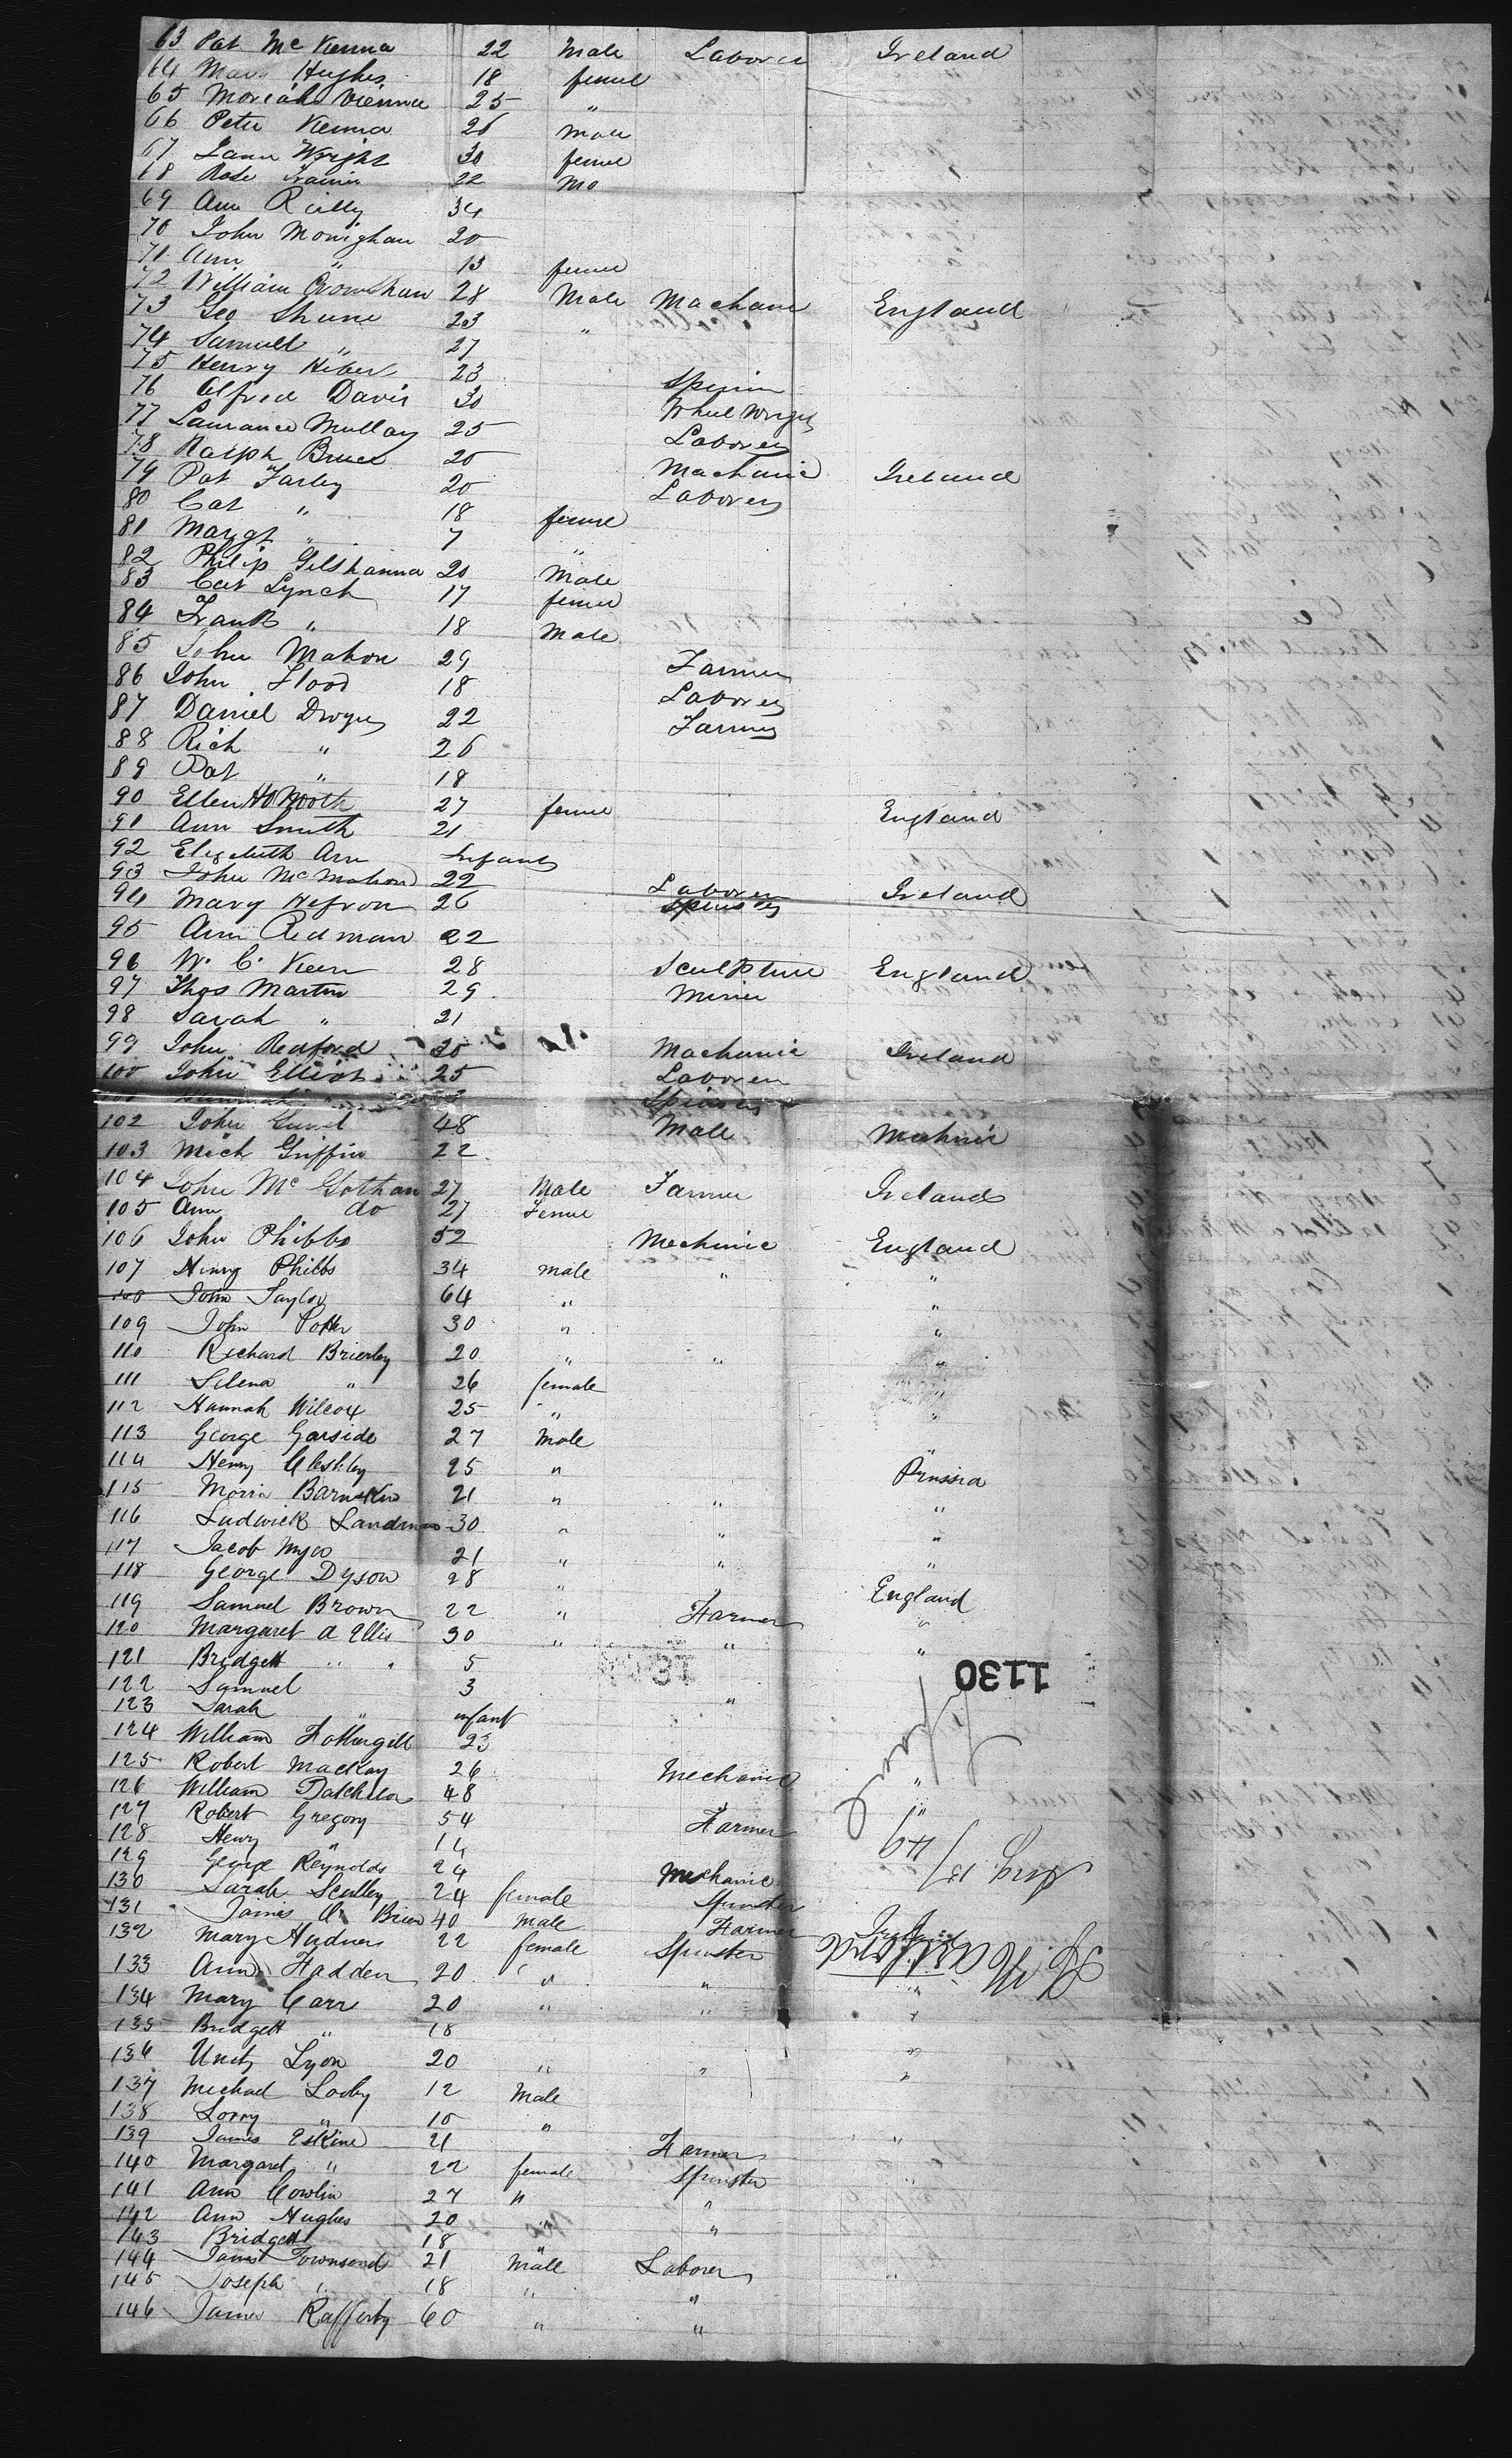 63 Pat McKenna 22 Male Laborer Ireland
64 Mary Hughes 18 femel
65 Moriah Vienna 25 "
66 Peter Kenna 26 Male
67 Jann Wright 30 femel
68 Rose Trainin 22 Mo
69 Ann Reilly 34
70 John Monighan 20
71 Ann " 13 femel
72 William Crowshaw 28 Male Machanic England
73 Geo Shune 23 "
74 Samuell " 27
75 Henry Hiber 23
76 Alfred Davis 30 Wheel Wright
77 Laurance Mullay 25 Laborer
78 Ralph Bruce 20 Machanic
79 Pat Farley 20 Laborer Ireland
80 Cat " 18 femel
81 Margt " 7 "
82 Philip Gilshanna 20 Male
83 Cat Lynch 17 femel
84 Frank " 18 Male
85 John Mahon 29 Farmer
86 John Flood 18 Laborer
87 Daniel Dwyer 22 Farmer
88 Rich " 26
89 Pat " 18
90 Ellen Howorth 27 femel England
91 Ann Smith 21
92 Elizebeth Ann Infant
93 John McMahon 22 Laborer Ireland
94 Mary Hefron 26 Spinster
95 Ann Redman 22
96 W. C. Keen 28 Sculpture England
97 Thos Martin 29 Miner
98 Sarah " 21
99 John Redford 30 Machanic Ireland
100 John Elliot 25 Laborer
Spinster
102 John 48 Male Mechnic
103 Mich Griffin 22
104 John McGothan 27 Male Farmer Ireland
105 Ann do 27 Femel
106 John Phibbs 52 Mechinic England
107 Henry Phibbs 34 male " "
108 John Taylor 64 " "
109 John Potter 30 " "
110 Richard Brierley 20 " " "
111 Selena " 26 female "
112 Hannah Wilcox 25 " "
113 George Garside 27 Male
114 Henry Cleshley 25 " Prussia
115 Morris Barnskin 21 " " "
116 Ludwick Landman 30 " " "
117 Jacob Myco 21 " " "
118 George Dyson 28 " England
119 Samuel Brown 22 " Farmer "
120 Margaret A Ellis 30 " " "
121 Bridgett " 5
1130
122 Samuel 3 "
123 Sarah " infant
124 William Fothergill 23
125 Robert Mackay 26 Mechanic "
126 William Batchelor 48 "
127 Robert Gregory 54 Farmer
128 Henry " 14
Aug 13/49
129 George Reynolds 24 Mechanic
130 Sarah Sculley 24 female Spinster
131 James O Brien 40 Male Farmer Ireland
132 Mary Hudner 22 female Spinster
133 Ann Fadden 20 " " "
134 Mary Carr 20 " " "
135 Bridgett " 18
136 Unity Lyon 20 " " "
137 Michael Looby 12 Male "
138 Lorry " 10 "
139 James Eskine 21 Farmer "
140 Margaret " 22 female Spinster
141 Ann Cowlin 27 " "
142 Ann Hughes 20 " "
143 Bridgett 18 "
144 James Townsend 21 Male Laborer "
145 Joseph " 18 " "
146 James Rafferty 60 " "